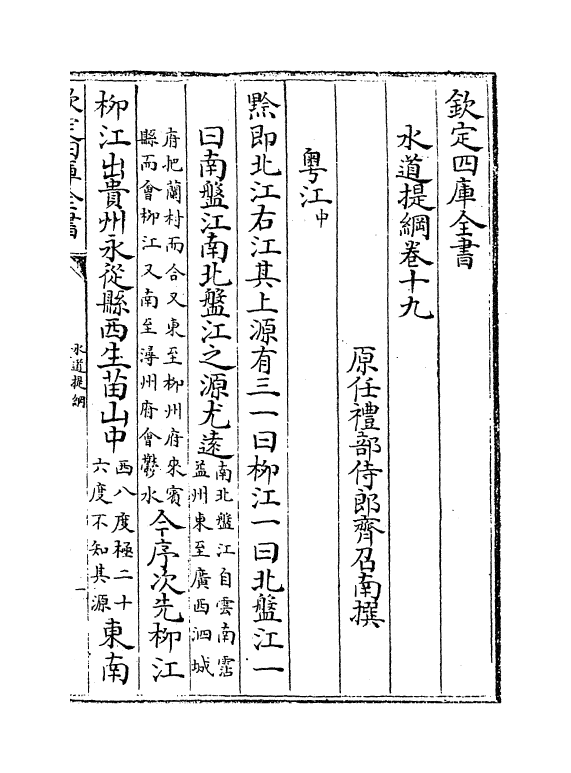 欽定四庫全書
水道提綱卷十九
原任禮部侍郎齊召南撰
粵江中
黔即北江右江其上源有三一曰柳江一曰北盤江一
曰南盤江南北盤江之源尤遠南北盤江自雲南霑益州東至廣西泗城
府把蘭村而合又東至柳州府來賓縣而會柳江又南至潯州府會鬱水今序次先柳江
柳江出貴州永從縣西生苗山中西八度極二十六度不知其源東南
欽定四庫全書
水道提綱
一